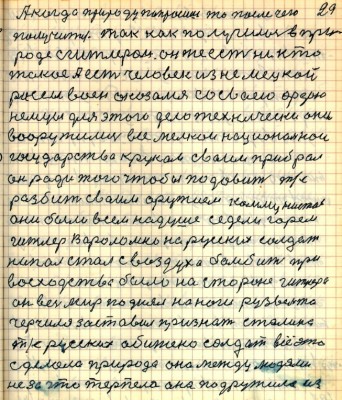 29
А когда природу попросиш то после чего
получиш. так как получилос в при-
роде с гитлером. он тесть не кто
то есть человек из немецкой
росеи воен с хозаям со своею ордою
немцы для этого дело технически они
вооружилис все мелкой национальной
государства кругом сваим прибрал
он ради того чтобы подовит т/е
разбит сваим оружием
они были всем на душе седели горем
гитлер на русских солдат
напал стал с воздуха бамбит при
восходства было на стороне гитлера
он весь мир поднял на ноги рузвелта
черчиля заставил признат сталина
т/е русских обижено солдат всё это
сделала природа она между людями
не за это терпела она подружила из